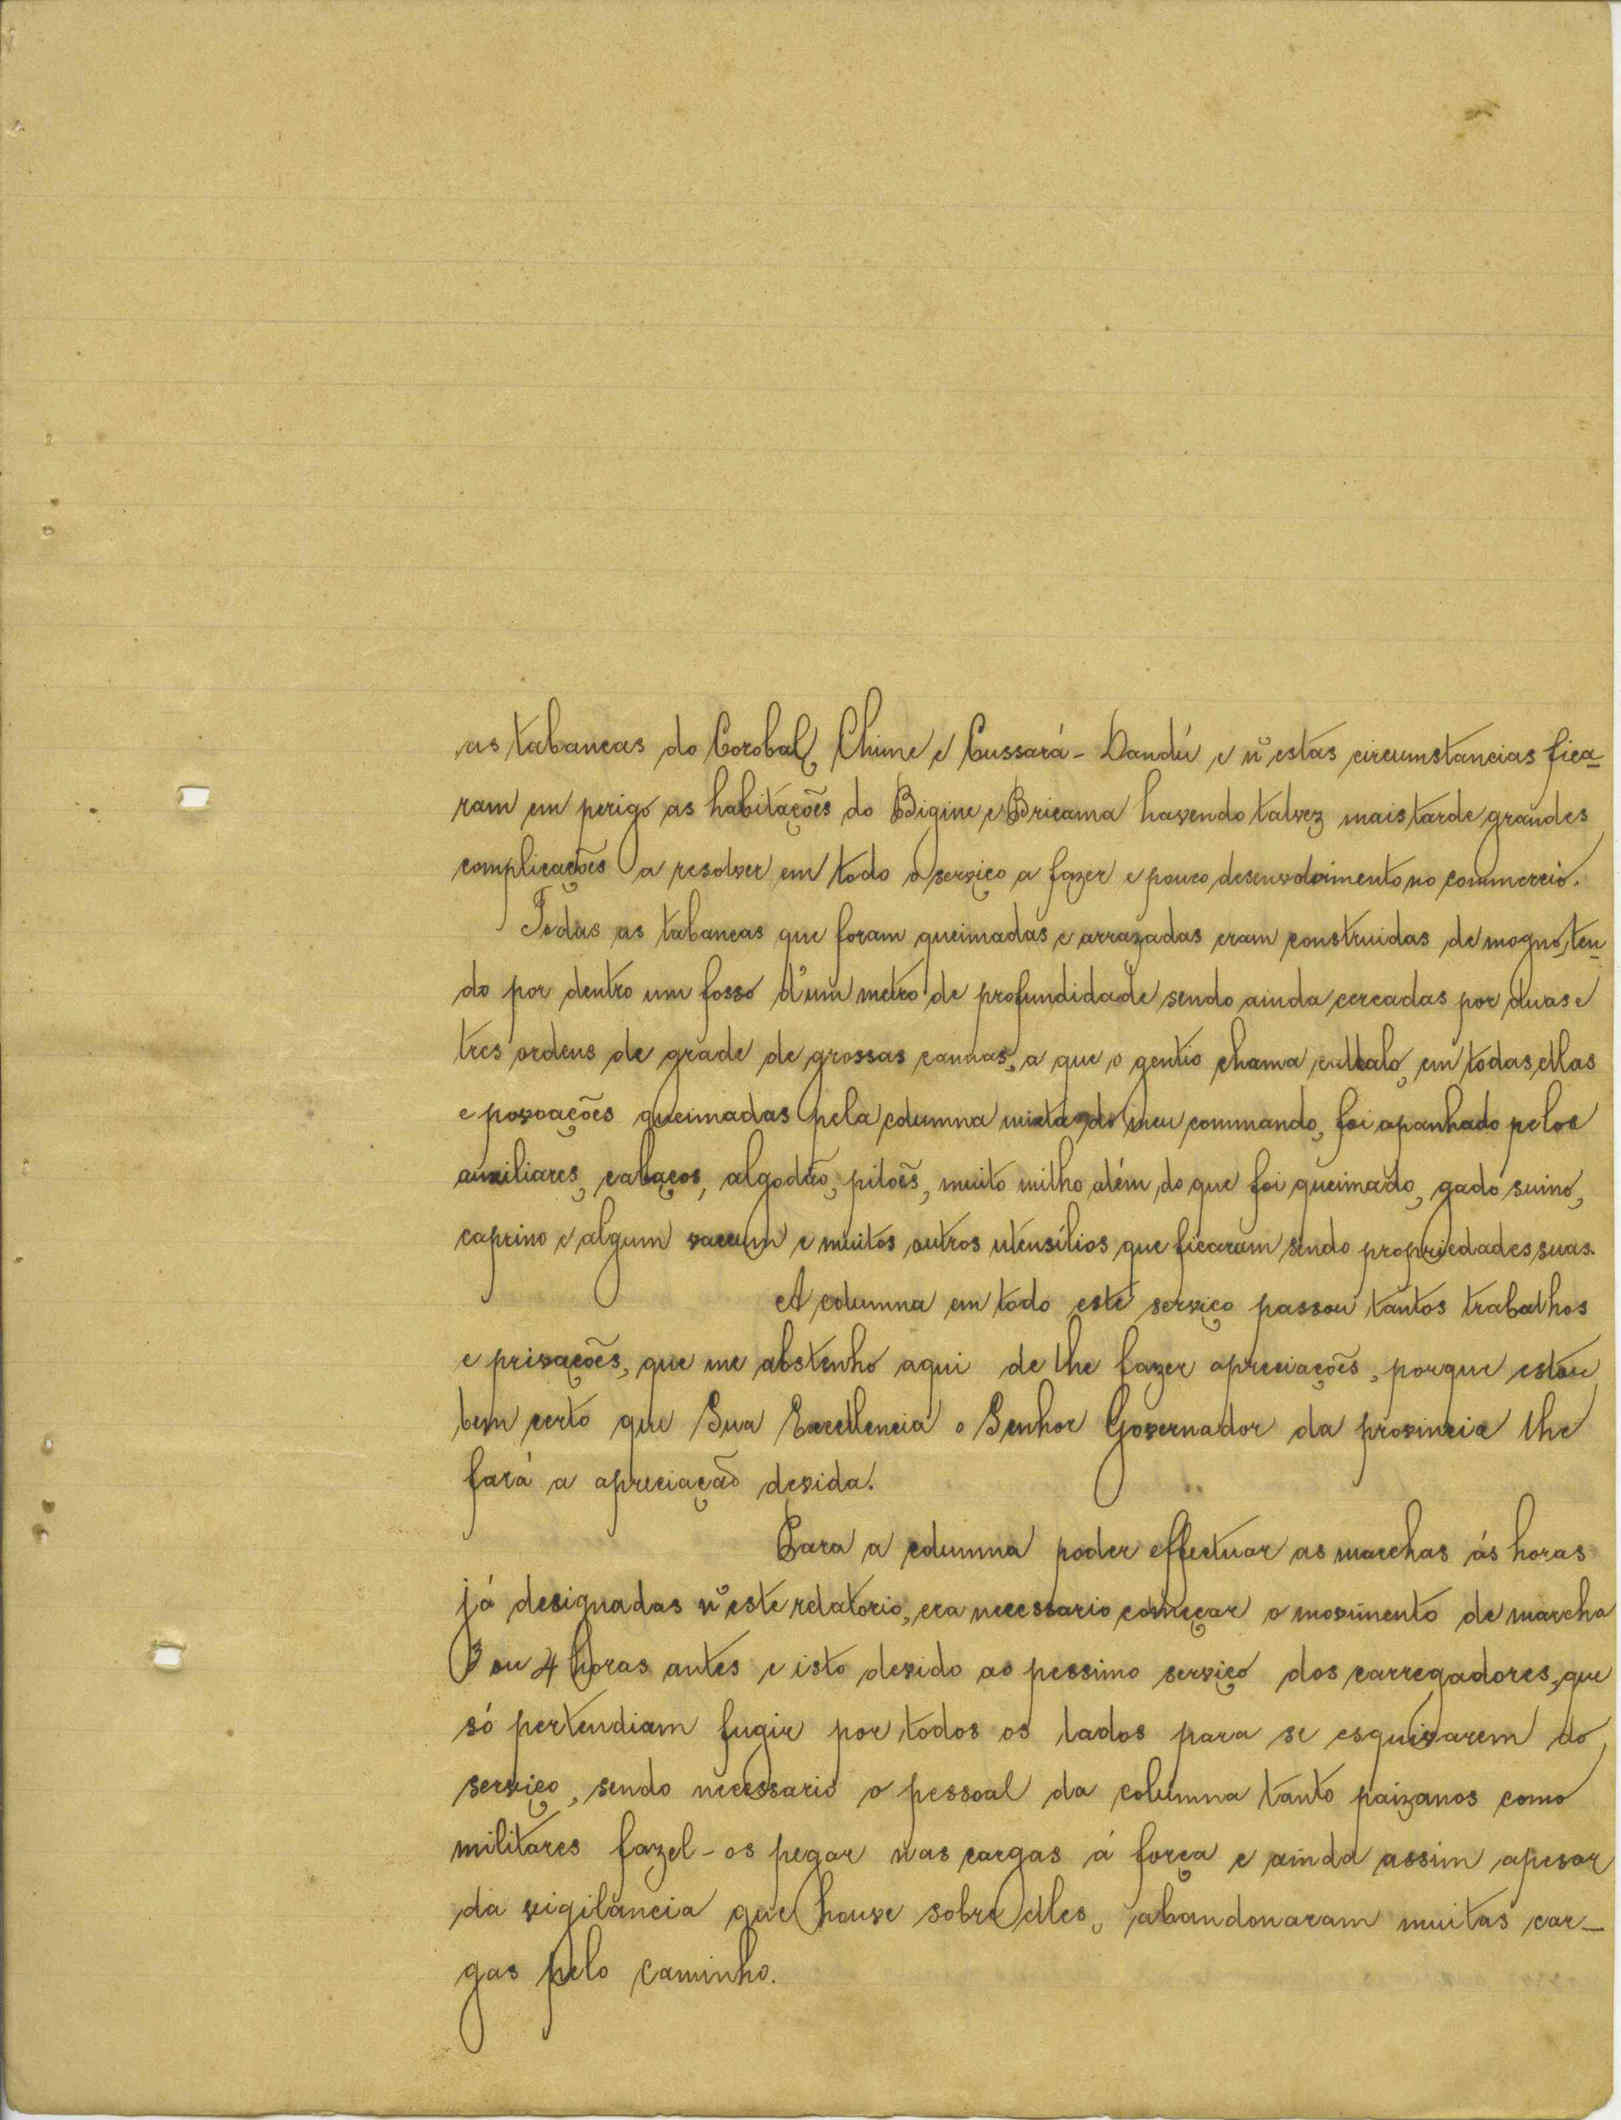 as tabancas do Corobal, Chime e Cussará-Dandú e n'estas circumstancias fica-
ram em perigo as habitações do Bigine e Bricama havendo talvez mais tarde grandes
complicações a resolver em todo o serviço a fazer e pouco desenvolvimento no commercio.
Todas as tabancas que foram queimadas e arrazadas eram construidas de mogno, ten-
do por dentro um fosso d'um metro de profundidade sendo ainda cercadas por duas e
tres ordens de grade de grossas cannas, a que o gentio chama, em todas ellas
e povoações queimadas pela columna mixta do meu commando, foi apanhado pelos
auxiliares, cabaços, algodão, pilões, muito milho além do que foi queimado, gado suino,
caprino e algum vacum e muitos outros utensílios que ficaram sendo propriedades suas.
A columna em todo este serviço passou tantos trabalhos
e privações, que me abstenho aqui de lhe fazer apreciações, porque estou
bem certo que Sua Excellencia o Senhor Governador da provincia lhe
fará a apreciação devida.
Para a columna poder effectuar as marchas ás horas
já designadas n'este relatorio, era necessario começar o movimento de marcha
3 ou 4 horas antes e isto devido ao pessimo serviço dos carregadores, que
só pertendiam fugir por todos os lados para se esquivarem do
serviço, sendo necessario o pessoal da columna tanto paizanos como
militares fazel-os pegar nas cargas á força e ainda assim apesar
da vigilancia que houve sobre elles, abandonaram muitas car-
gas pelo caminho.